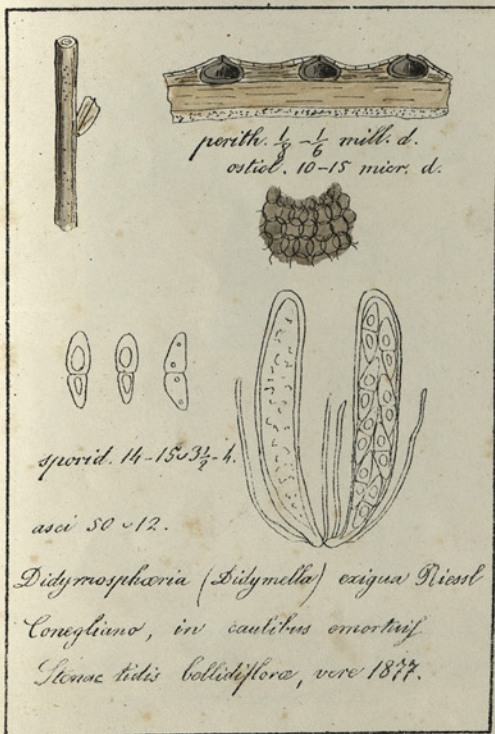 perith. 1/8 - 1/6 mill. d.
ostiol. 10-15 micr. d.
sporid. 14-15 ᴗ 3 1/2 - 4.
asci 50 ᴗ 12.
Didymosphæria (Didymella) exigua Niessl
Conegliano, in caulibus emortuis
bellidifloræ, vere 1877.